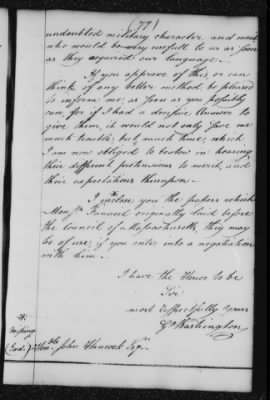 (77)
undoubted military character and merit
who would be very usefull to us as soon
as they acquired our language.
If you approve of this, or can
think of any better method, be pleased
to inform me, as soon as you possibly
can, for if I had a decisive Answer to
give them, it would not only save me
much trouble, but much time; which
I am now obliged to bestow in hearing
their different pretensions to merit, and
their expectations thereupon.
I inclose you the papers which
Monsr Fanneuil originally laid before
the Council of Massachusetts, they may
be of use, if you enter into a negotiation
with him.
I have the Honor to be
Sir
most respectfully yours
Go Washington
missing
Honble John Hancock Esqr